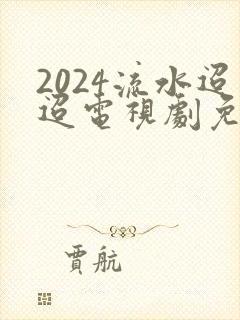 2024流水迢
迢電視劇免
賈航